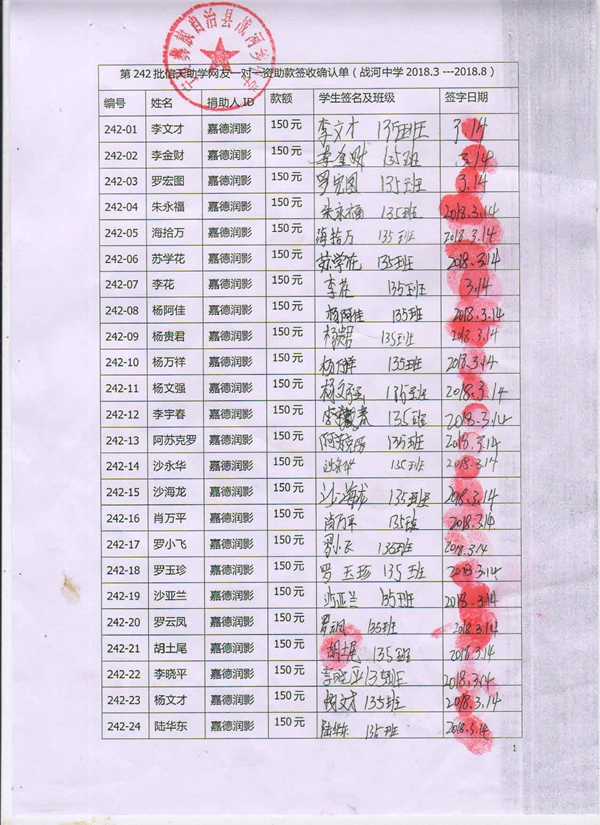 第 242 批信天助学网友一对一资助款签收确认单（战河中学 2018.3 ---2018.8）
编号 姓名 捐助人 ID 款额 学生签名及班级 签字日期
242-01 李文才 嘉德润影 150 元 李文才 135班 3.14
242-02 李金财 嘉德润影 150 元 李金财 135班 3.14
242-03 罗宏图 嘉德润影 150 元 罗宏图 135班 3.14
242-04 朱永福 嘉德润影 150 元 朱永福 135班 2018.3.14
242-05 海拾万 嘉德润影 150 元 海拾万 135班 2018.3.14
242-06 苏学花 嘉德润影 150 元 苏学花 135班 2018.3.14
242-07 李花 嘉德润影 150 元 李花 135班 3.14
242-08 杨阿佳 嘉德润影 150 元 杨阿佳 135班 2018.3.14
242-09 杨贵君 嘉德润影 150 元 135班 2018.3.14
242-10 杨万祥 嘉德润影 150 元 杨万祥 135班 2018.3.14
242-11 杨文强 嘉德润影 150 元 杨文强 135班 2018.3.14
242-12 李宇春 嘉德润影 150 元 135班 2018.3.14
242-13 阿苏克罗 嘉德润影 150 元 阿苏克罗 135班 2018.3.14
242-14 沙永华 嘉德润影 150 元 沙永华 135班 2018.3.14
242-15 沙海龙 嘉德润影 150 元 沙海龙 135班 2018.3.14
242-16 肖万平 嘉德润影 150 元 肖万平 135班 2018.3.14
242-17 罗小飞 嘉德润影 150 元 罗小飞 135班 2018.3.14
242-18 罗玉珍 嘉德润影 150 元 罗玉珍 135班 2018.3.14
242-19 沙亚兰 嘉德润影 150 元 沙亚兰 135班 2018.3.14
242-20 罗云凤 嘉德润影 150 元 135班 2018.3.14
242-21 胡土尾 嘉德润影 150 元 胡土尾 135班 2018.3.14
242-22 李晓平 嘉德润影 150 元 李晓平 135班 2018.3.14
242-23 杨文才 嘉德润影 150 元 杨文才 135班 2018.3.14
242-24 陆华东 嘉德润影 150 元 陆华东 135班 2018.3.14
1